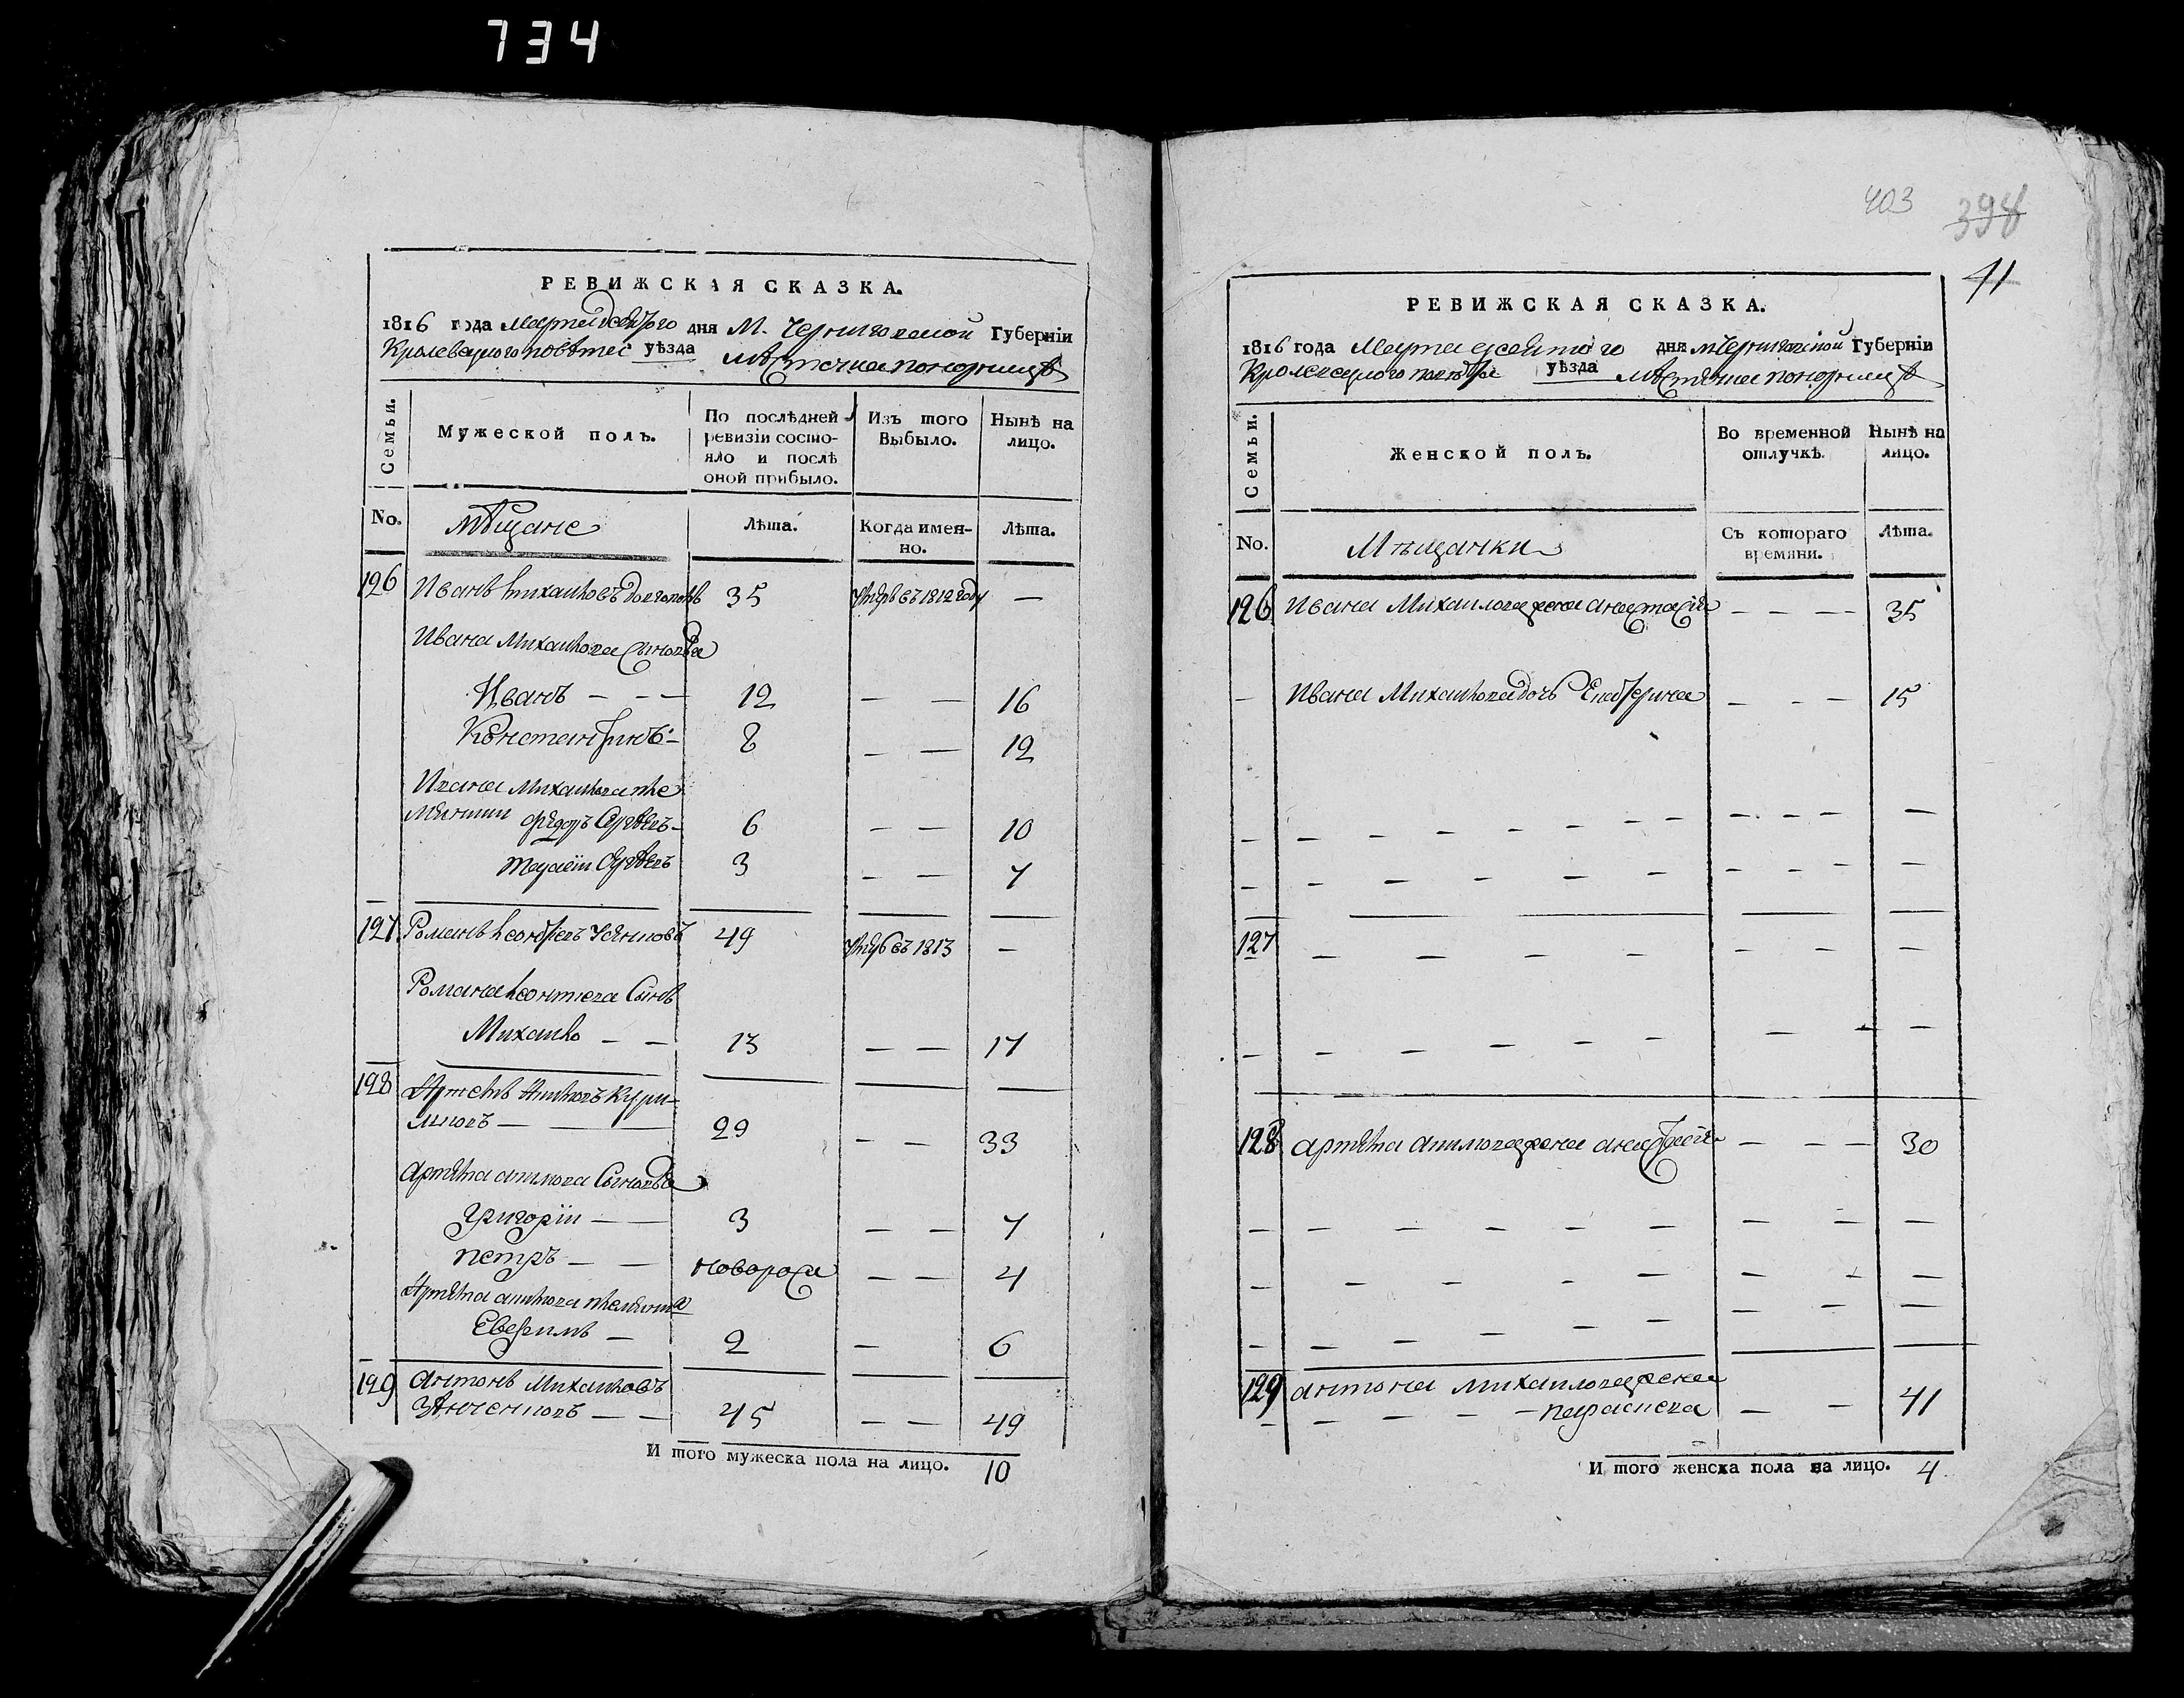 734
РЕВИЖСКАЯ СКАЗКА.
1816 года Марта десятого дня М. Черниговской Губерніи
Кролевецкого повѣта уѣзда Мѣсточка Понорницѣ
Семьи.
Мужеской полъ.
По послѣдней ревизіи состо-
яло и послѣ
оной прибыло.
Изъ того
Выбыло.
Нынѣ на
лицо.
No.
Мѣщане
Лѣта.
Когда имен-
но.
Лѣта.
126 Иванъ Михайловъ 35 въ 1812 году —
Ивана Михайлова Сыновья
Иванъ - - — 12 — — 16
Константинъ - 8 — — 12
Ивана Михайлова пле
мянники Федоръ Сергѣевъ - 6 — — 10
Сергѣевъ 3 — — 7
127 Романъ Леонтьевъ 49 въ 1813 —
Романа Леонтиева Сынъ
Михайло — — 13 — — 17
128 Артемъ
— — 29 — — 33
Артема Сыновья
Григорій — — 3 — — 7
Петръ — — новорож 4
Артема
— 2 — 6
129 Антонъ Михайловъ
— — 45 — — 49
И того мужеска пола на лицо. 10
403 398
41
РЕВИЖСКАЯ СКАЗКА.
1816 года Марта десятого дня М Черниговской Губерніи
Кролевецкого повѣта уѣзда Мѣсточка Понорницѣ
Семьи.
Женской полъ.
Во временной
отлучкѣ.
Нынѣ на
лицо.
No.
Мѣщанки
Съ котораго
времяни.
Лѣта.
126 Ивана Михайлова жена Анастасія — — — 35
— Ивана Михайлова дочь Екатерина — - — 15
127
128 Артема жена Анастасія — — — 30
129 Антона Михайлова жена
— Параскева — — 41
И того женска пола на лицо. 4